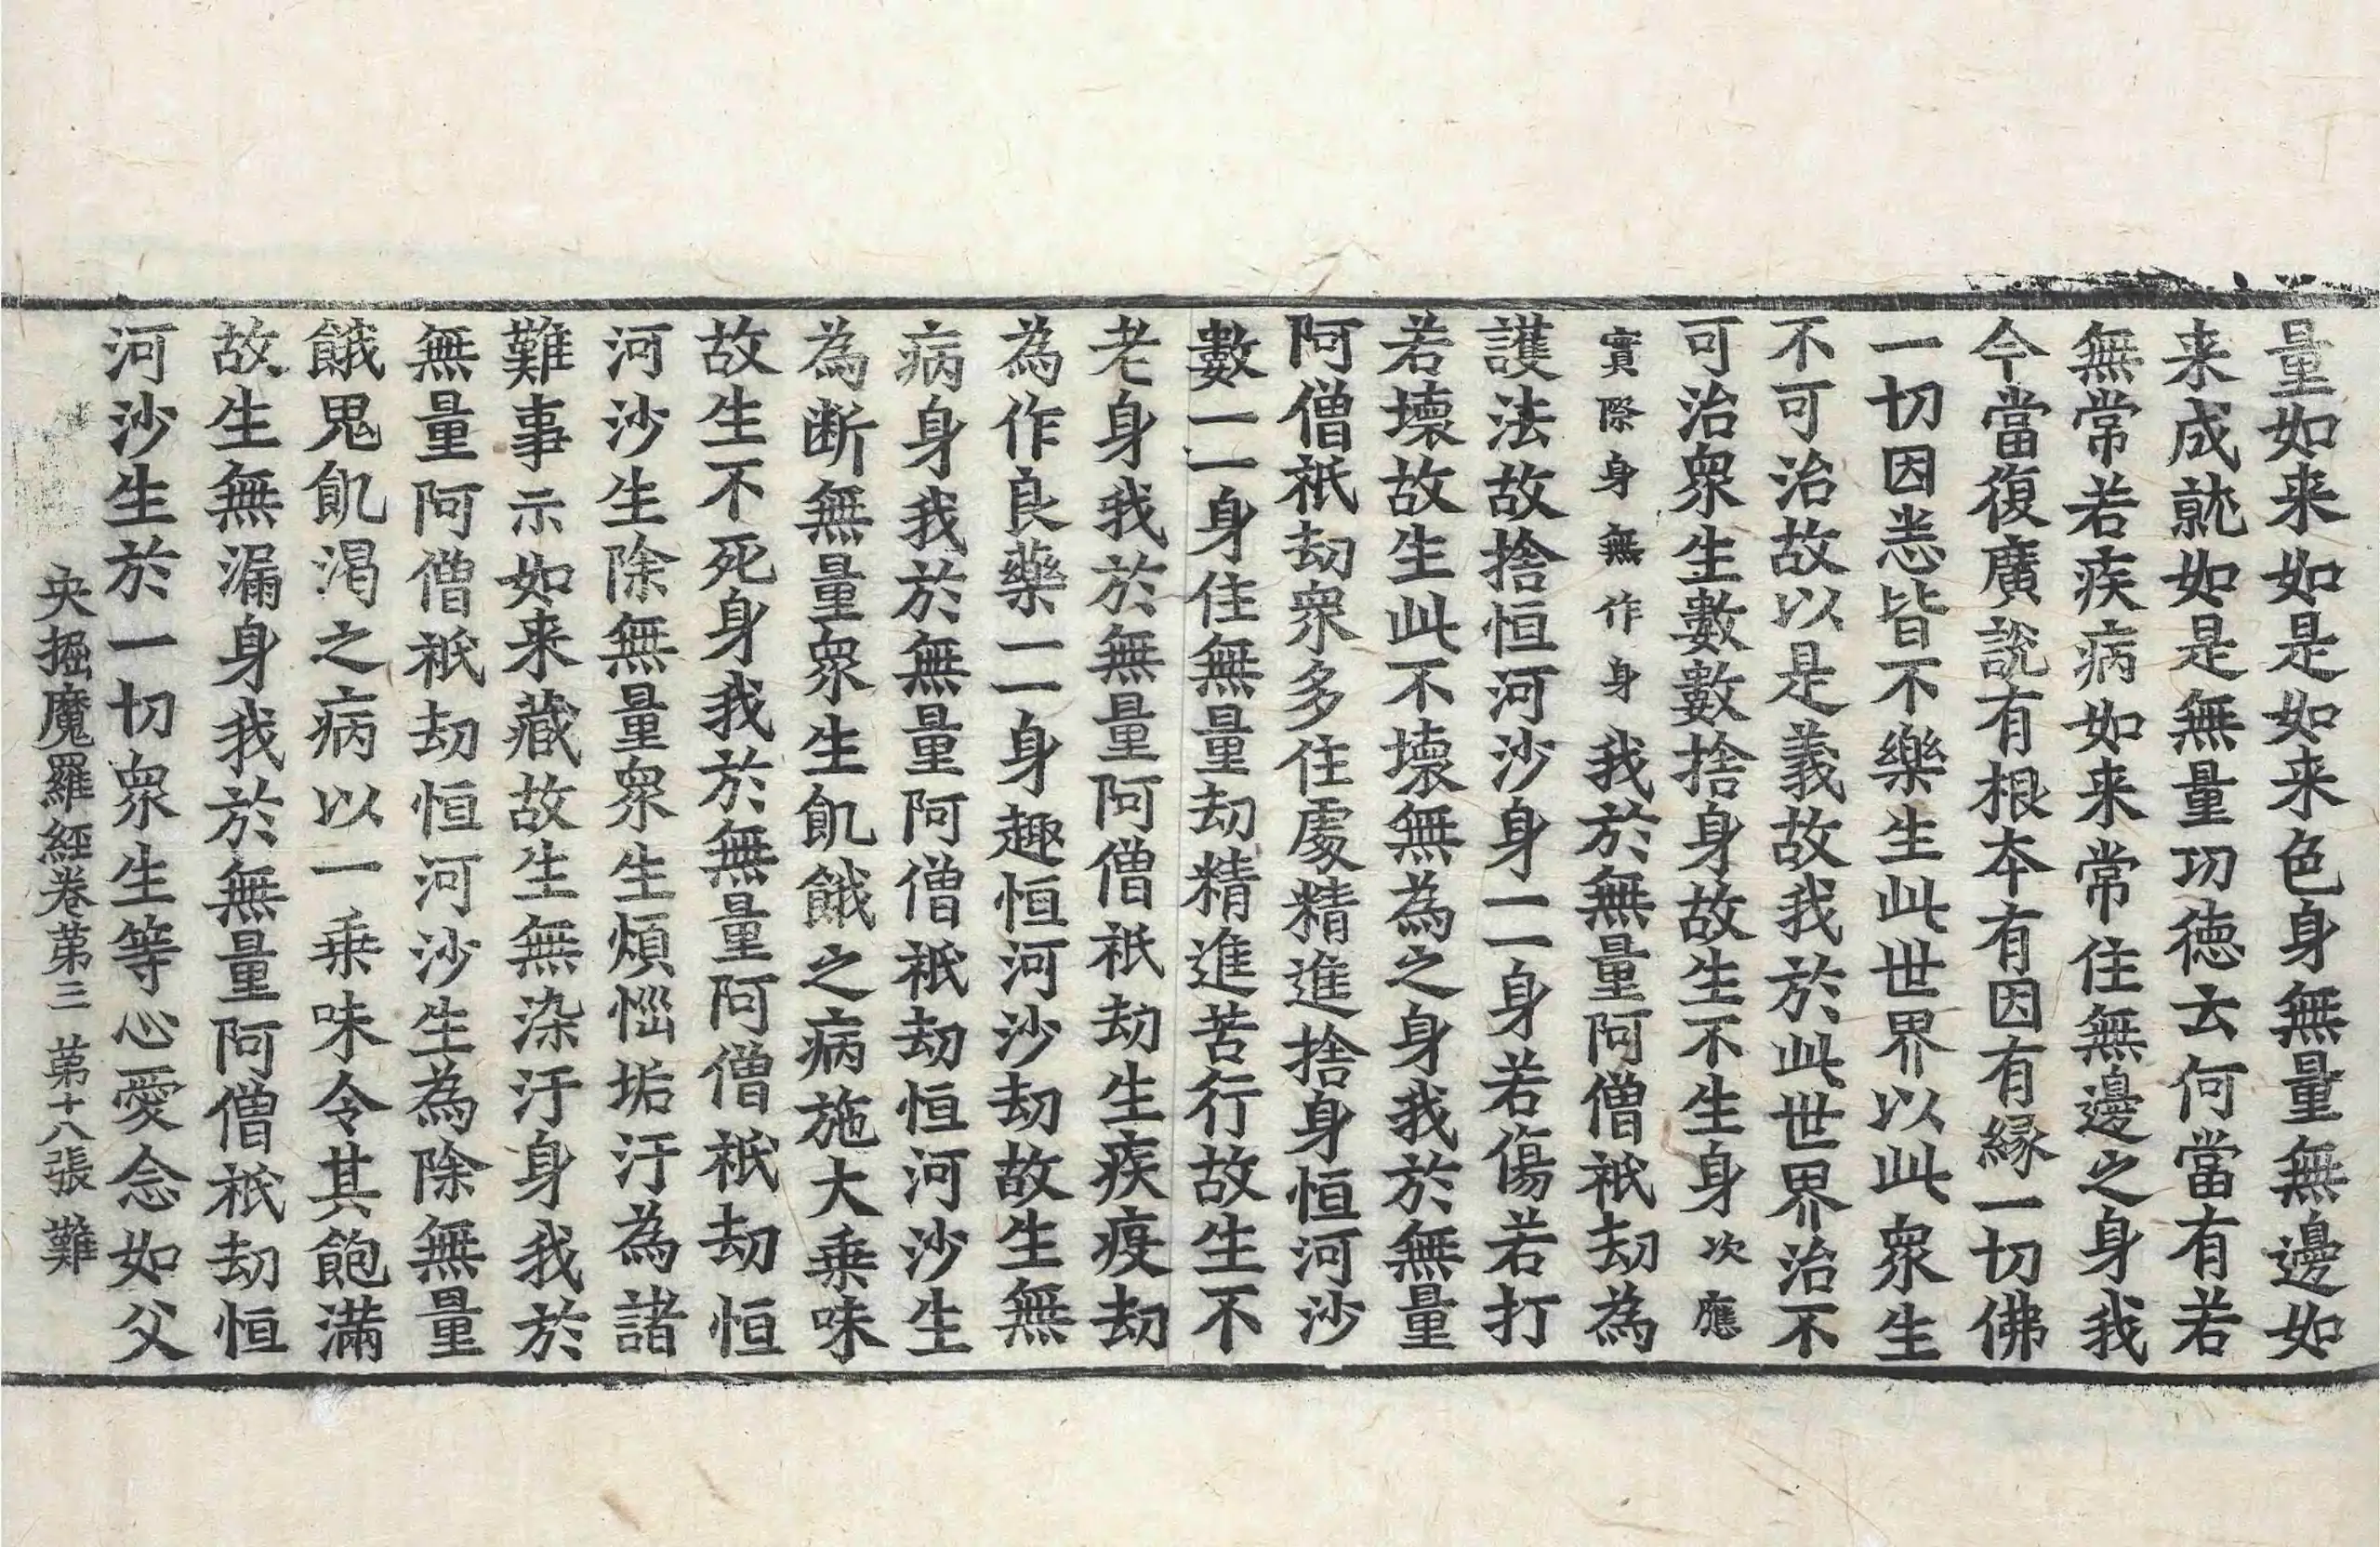 量如来如是如来色身無量無邊如
来成就如是無量功徳云何當有若
無常若疾病如来常住無邊之身我
今當復廣說有根本有因有縁一切佛
一切因恙皆不樂生此世界以此衆生
不可治故以是義故我於此世界治不
可治衆生數數捨身故生不生身次應
實際身無作身我於無量阿僧祇劫為
護法故捨恒河沙身一一身若傷若打
若壞故生此不壞無為之身我於無量
阿僧祇劫衆多住處精進捨身恒河沙
數一一身住無量劫精進苦行故生不
老身我於無量阿僧祇劫生疾疫劫
為作良藥一一身趣恒河沙劫故生無
病身我於無量阿僧祇劫恒河沙生
為断無量衆生飢餓之病施大乗味
故生不死身我於無量阿僧祇劫恒
河沙生除無量衆生煩惱垢汙為諸
難事示如来藏故生無染汙身我於
無量阿僧祇劫恒河沙生為除無量
餓鬼飢渇之病以一乗味令其飽滿
故生無漏身我於無量阿僧祇劫恒
河沙生於一切衆生等心愛念如父
央掘魔羅經卷苐三 苐十八張 難